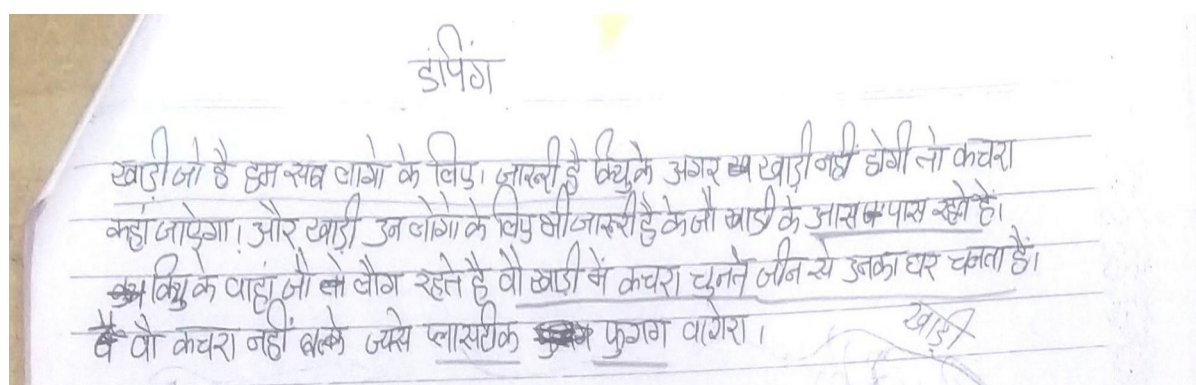 डंपिंग
खाड़ी जो है हम सब लागो के लिए। जारुरी है क्यिुके अगर खाड़ी नहीं होगी तो कचरा
कहां जाऐगा। और खाड़ी उन लोगो के लिए भी जारूरी है के जौ खाडी के आस पास रहते हैं।
क्यिु के वाहां जौ लौग रहते है वौ खाड़ी में कचरा चुनते जीन से उनका घर चलता हैं।
वो कचरा नहीं बल्के ज्येसे प्लासटीक फुगग वागेरा।
खाड़ी